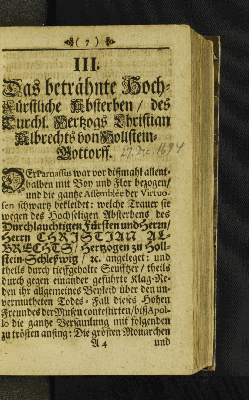 ( 7 )
III.
Das beträhnte Hoch-
Fürstliche Absterben / des
Durchl. Hertzogs Christian
Albrechts von Hollstein-
Gottorff. 27. Dec. 1694
Der Parnassus war vor dißmahl allent-
halben mit Boy und Flor bezogen/
und die gantze Assemblée der Virtuo-
sen schwartz bekleidet: welche Trauer sie
wegen des Hochseligen Absterbens des
Durchlauchtigen Fürsten und Herrn/
Herrn CHRISTIAN AL-
BRECHTS / Hertzogen zu Holl-
stein-Schleßwig / ꝛc. angeleget: und
theils durch tieffgeholte Seufftzer / theils
durch gegen einander geführte Klag-Re-
den ihr allgemeines Beyleid über den un-
vermutheten Todes-Fall dieses Hohen
Freundes der Musen contestirten/ biß Apol-
lo die gantze Versamlung mit folgenden
zu trösten anfing: Die grösten Monarchen
A 4 und